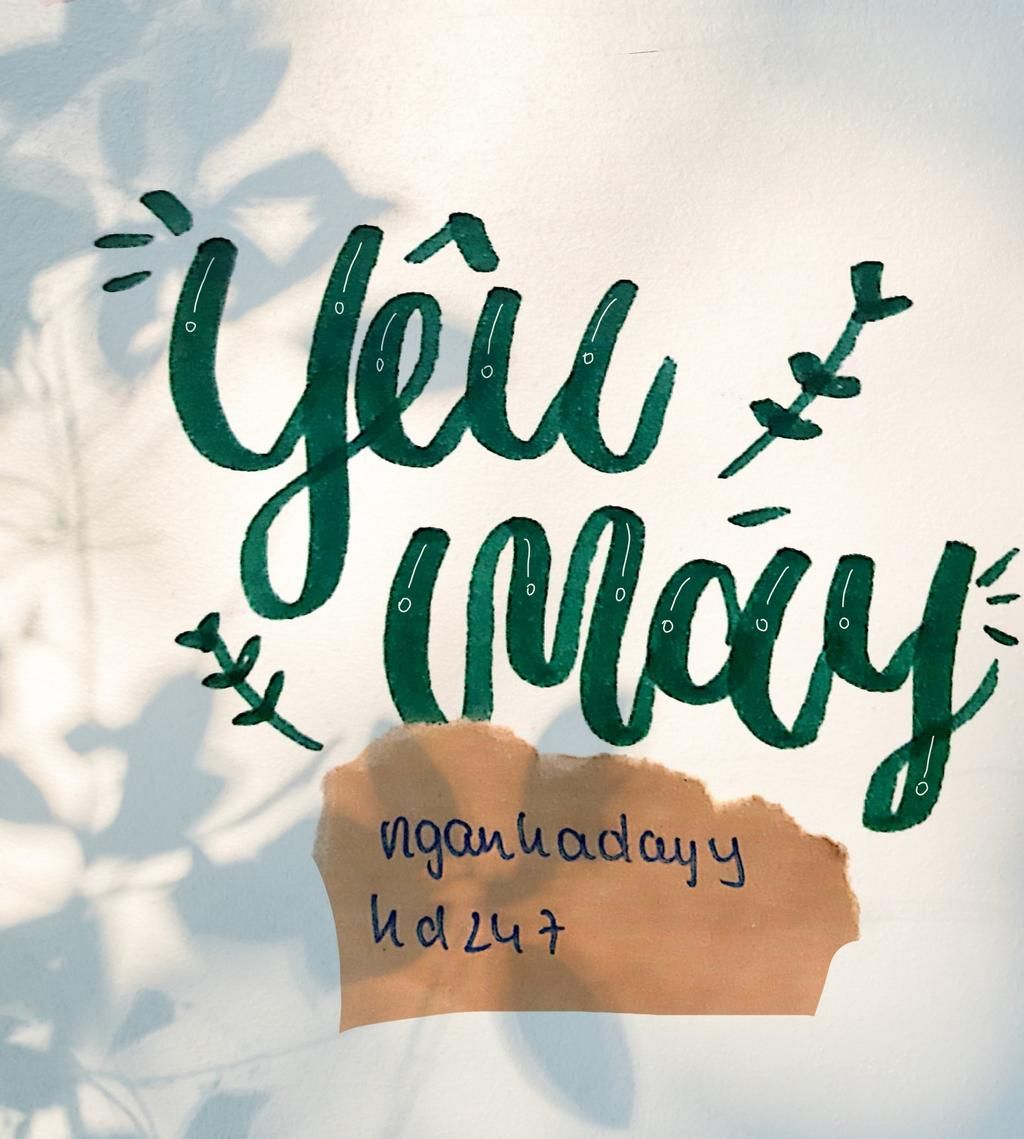 yêu
máy
ngankadayy
kd247